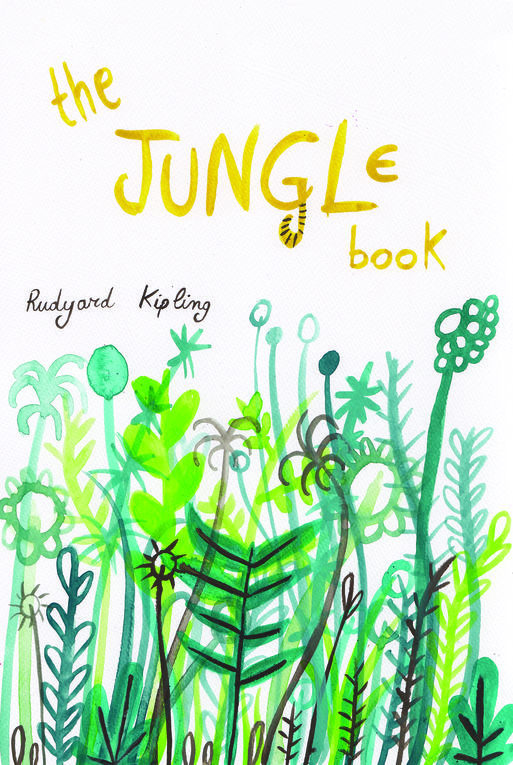 the
JUNGLE
book
Rudyard Kipling